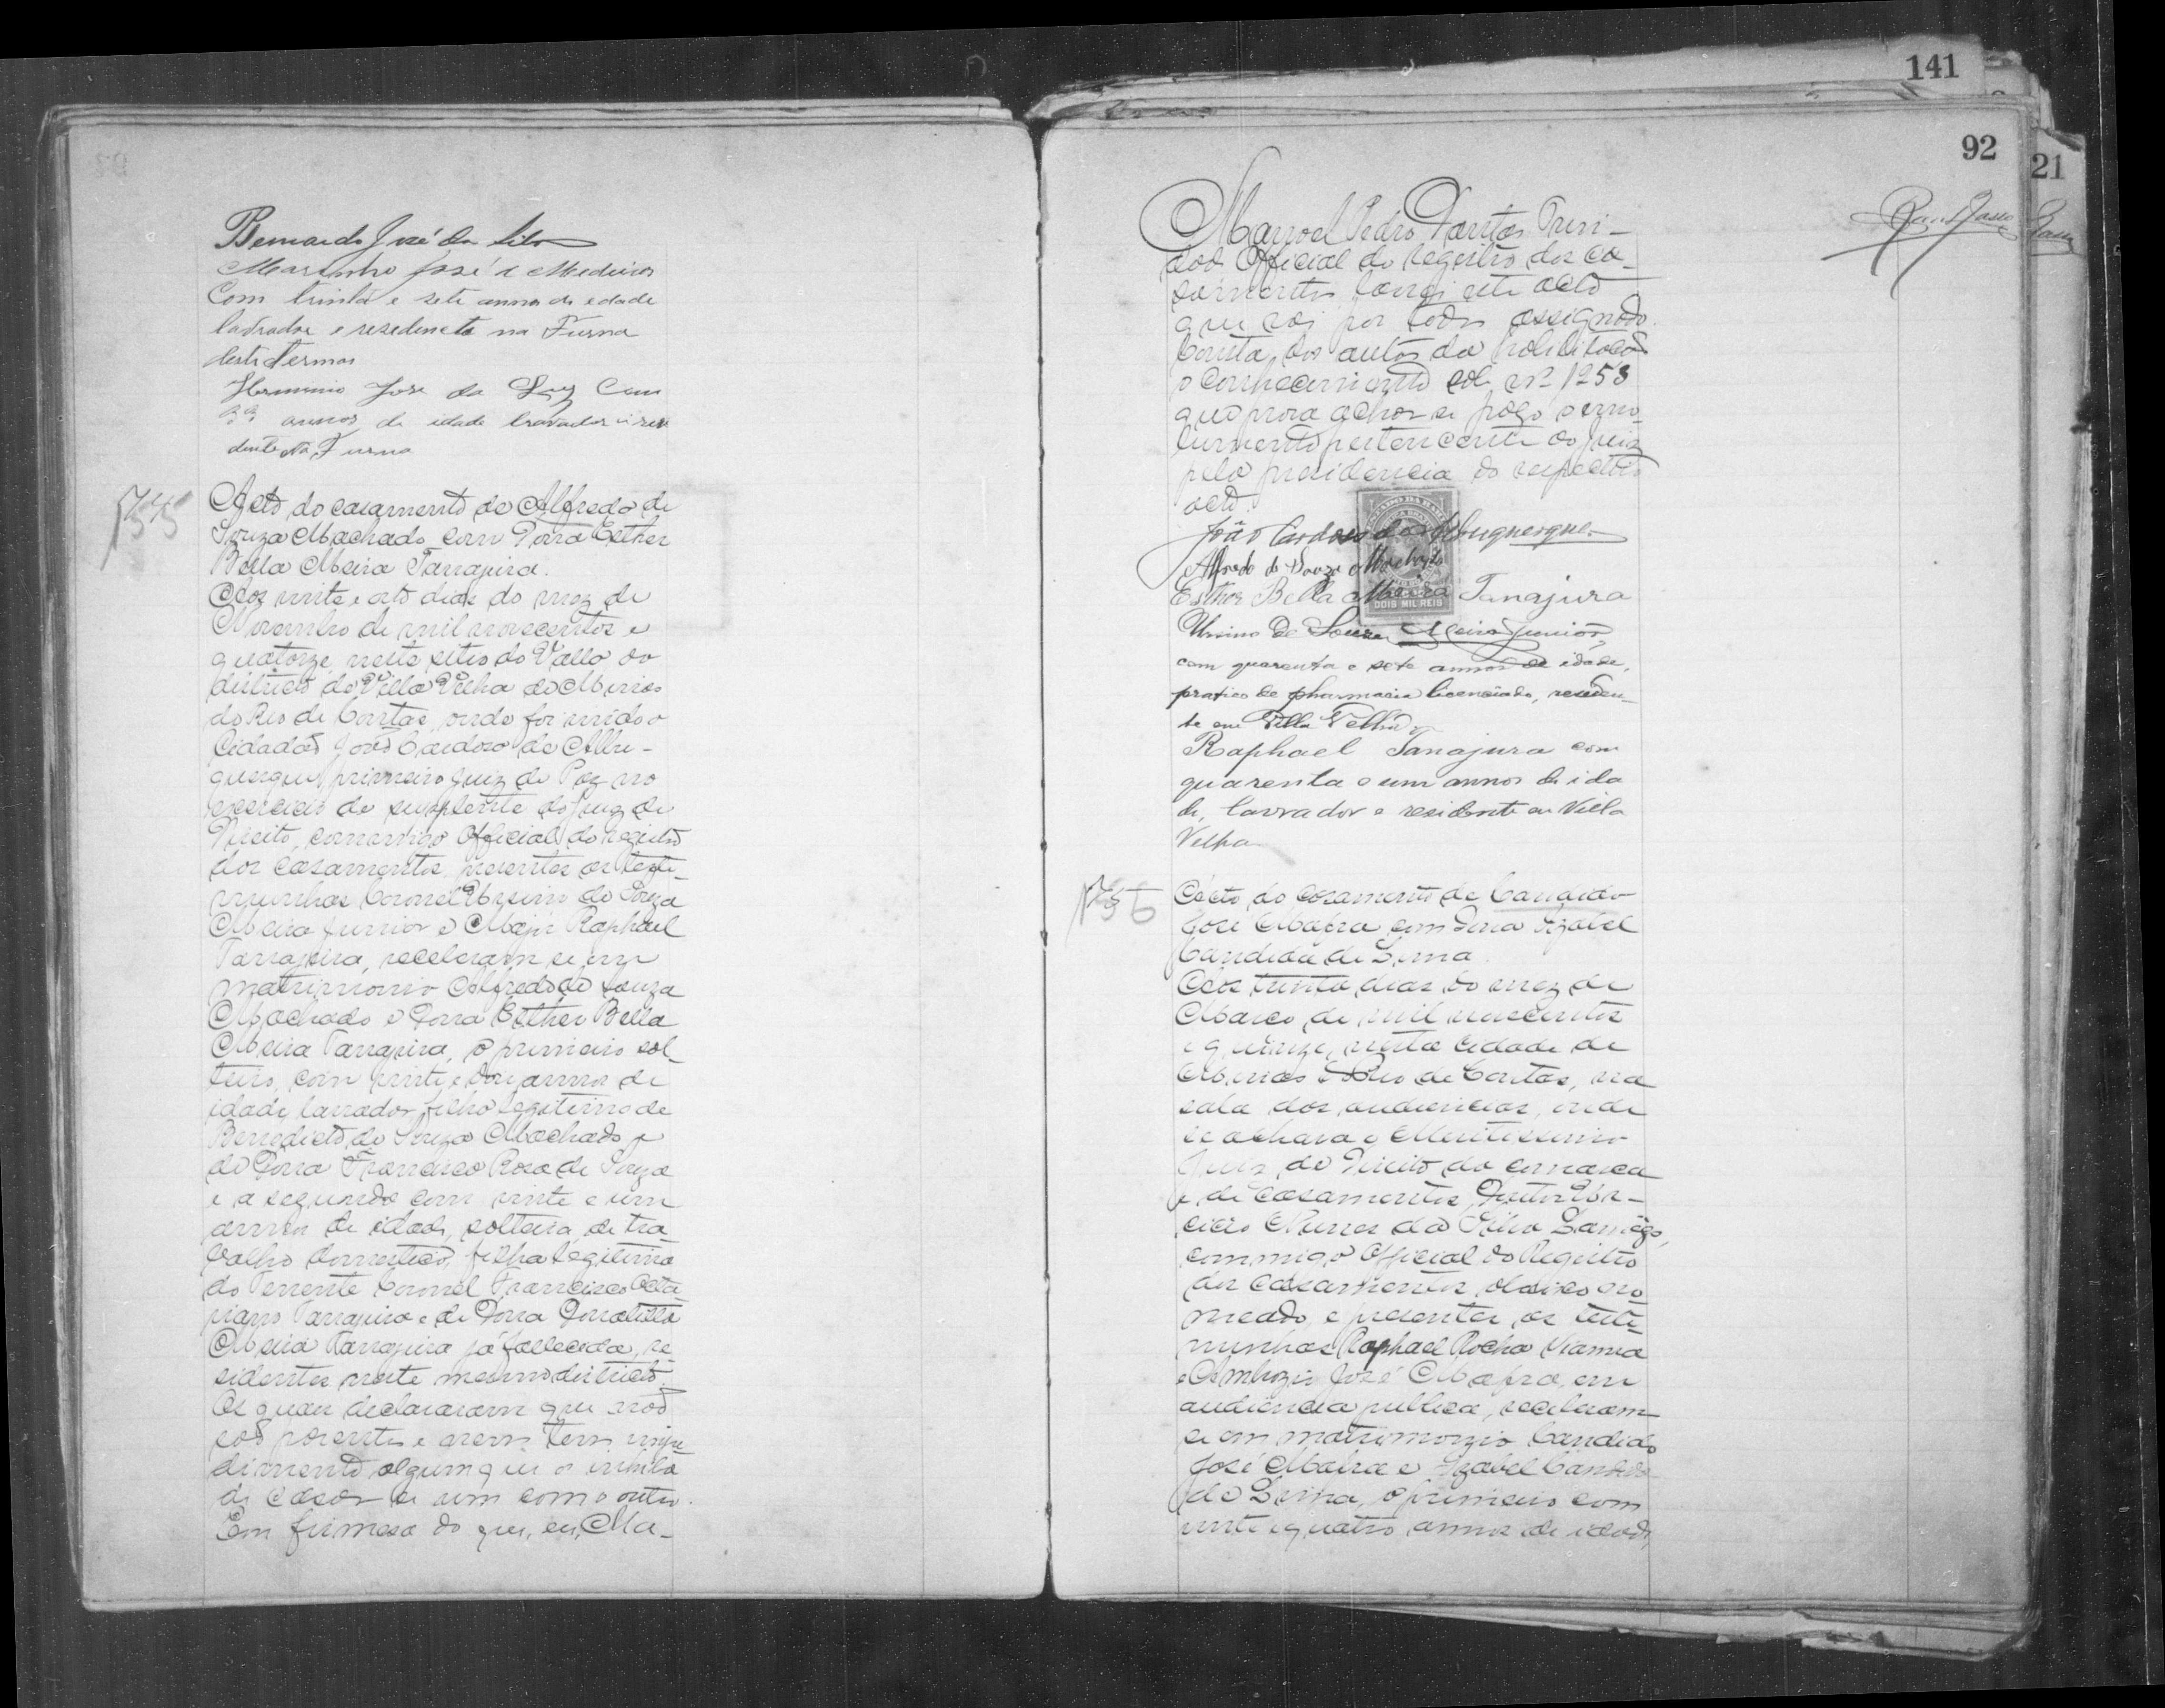 Bernardo José da Silva
Marinho José de Medeiros
Com trinta e sete annos de edade
lavrador e resedencta na Furna
deste termos
Herminio Jose da Luz Com
annos de idade lavrador i resi
dente Na Furna
Acto do casamento de Alfredo de
Souza Machado com Dona Esther
Bella Meira Tanajura.
Aos vinte e oito dias do mez de
Novembro de mil novecentos e
quatorze, neste sitio do Vallo do
districto de Villa Velha de Minas
do Rio de Contas, onde foi vindo o
Cidadão João Cardoso de Albu-
querque primeiro juiz de Paz no
exercicio de supplente do Juiz de
Direito, commigo Official do registro
dos casamentos, presentes as teste-
munhas Coronel Ursino de Souza
Meira Junior e Major Raphael
Tanajura, receberam-se em
matrimonio Alfredo de Souza
Machado e Dona Esther Bella
Meira Tanajura, o primeiro sol-
teiro, com vinte e dois annos de
idade, lavrador, filho legitimo de
Benedicto de Souza Machado e
de Dona Francisca Rosa de Souza
e a segunda com vinte e um
annos de idade, solteira, de tra-
balho domestico, filha legitima
do Tenente Coronel Francisco Octa-
viano Tanajura e de Dona
Meira Tanajura já fallecida, re-
sidentes neste mesmo districto.
Os quaes declararam que não
são parentes e nem tem impe-
dimento algum que os inhiba
de casar se um com o outro.
Em firmesa do que, eu, Ma-
141
92
21
Manoel Pedro Dantas
Official do registro dos ca-
samentos lavrei este acto
que vai por todos assignado.
Consta dos autos da habilitação
o conhecimento sob nº 1258
que prova achar-se pago o emo-
lumento pertencente ao juiz
pela presidencia do respectivo
acto.
João Cardoso de Albuquerque
Alfredo de Souza Machado
Esther Bella Meira Tanajura
DOIS MIL REIS
Ursino de Souza Meira Junior,
com quarenta e sete annos de idade,
pratico de pharmacia licenciado, residen-
te em Villa Velha
Raphael Tanajura com
quarenta e um annos de ida
de, lavrador e residente em Villa
Velha
Acto do casamento de Candido
José Mafra com Dona Izabel
Candida de Lima.
Aos trinta dias do mez de
Março de mil novecentos
e quinze, nesta cidade de
Minas do Rio de Contas, na
sala das audiencias, onde
se achava o Meritissimo
Juiz de Direito da comarca
e de casamentos, Doutor
Nunes da Silva
commigo Official do Registro
dos casamentos, abaixo no-
meado e presentes as teste-
munhas Raphael Rocha Vianna
e Ambrozio José Mafra, em
audiencia publica, receberam-
se em matrimonio Candido
José Mafra e Izabel Candida
de Lima, o primeiro com
vinte e quatro annos de idade,